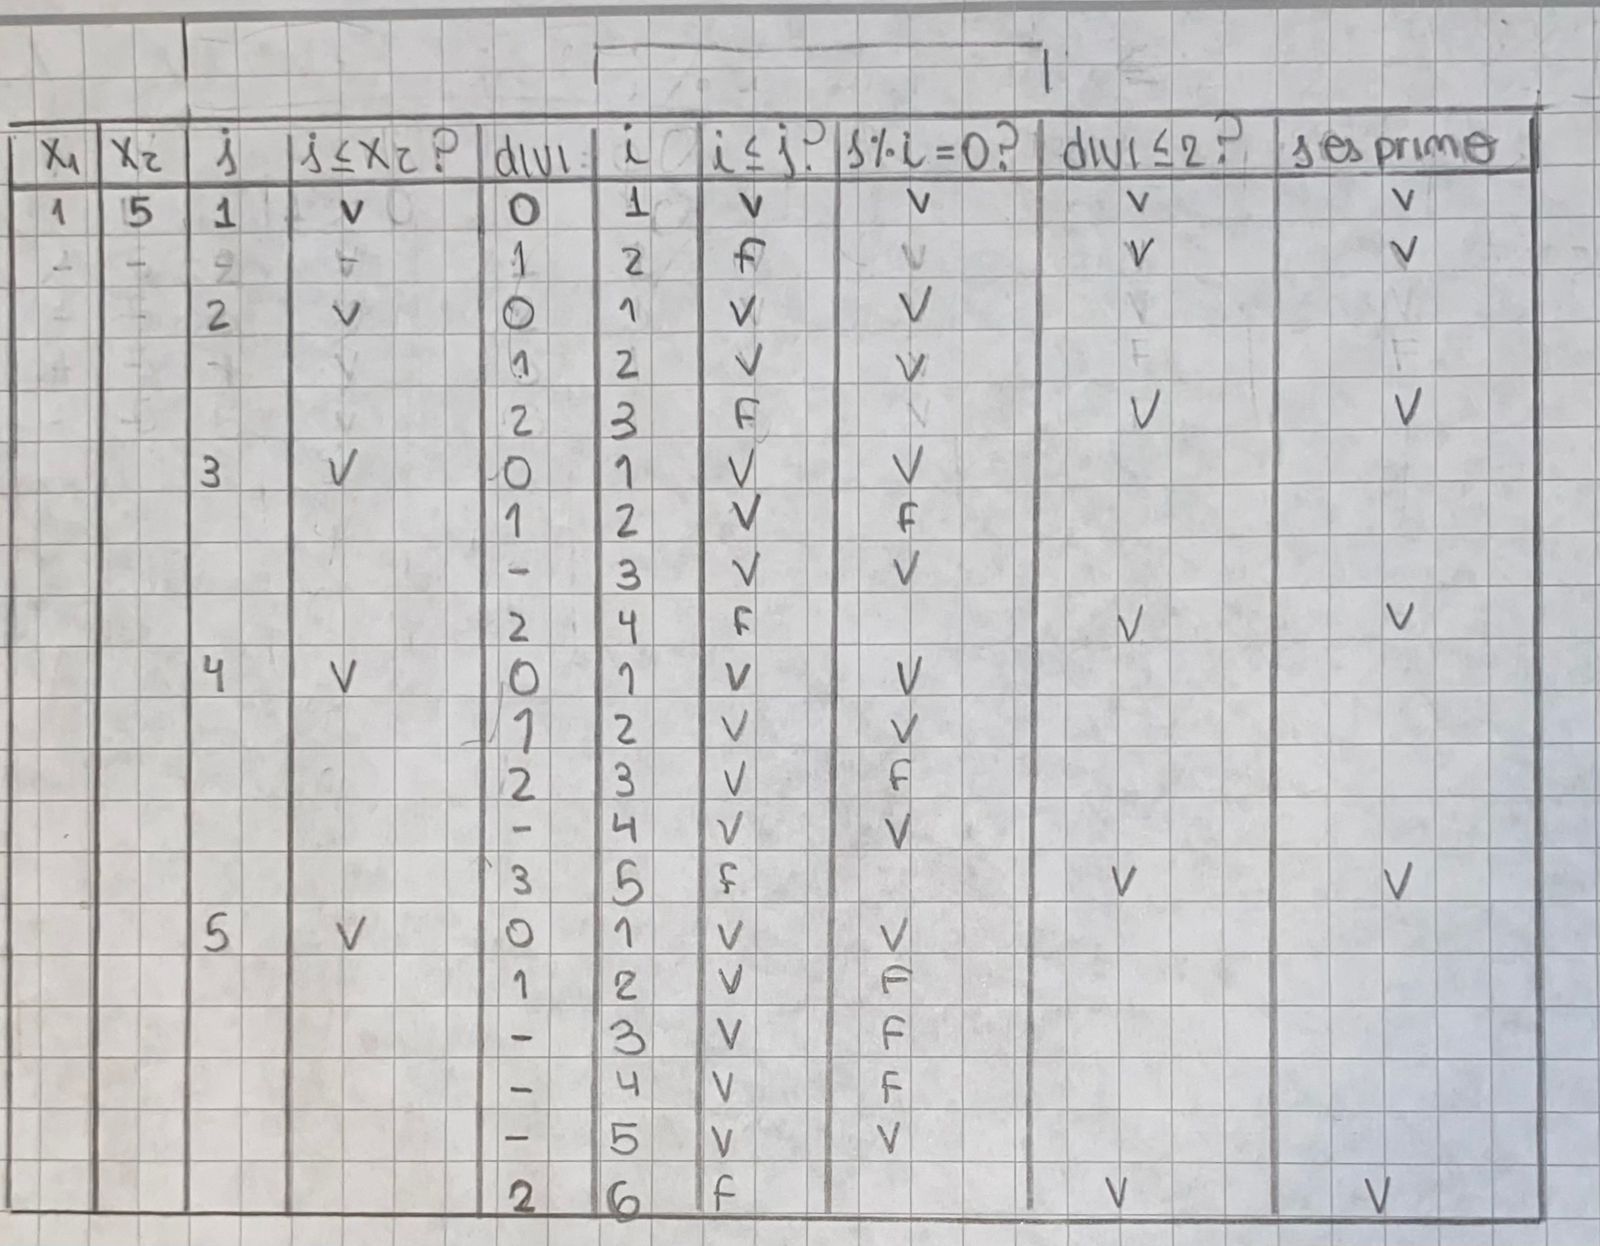 x1 x2 j j ≤ x2? divi i i ≤ j? j%i = 0? divi ≤ 2? j es primo
1 5 1 V 0 1 V V V V
- - 1 2 F V V
2 V 0 1 V V
1 2 V V
2 3 F V V
3 V 0 1 V V
1 2 V F
- 3 V V
2 4 F V V
4 V 0 1 V V
1 2 V V
2 3 V F
- 4 V V
3 5 F V V
5 V 0 1 V V
1 2 V F
- 3 V F
- 4 V F
- 5 V V
2 6 F V V